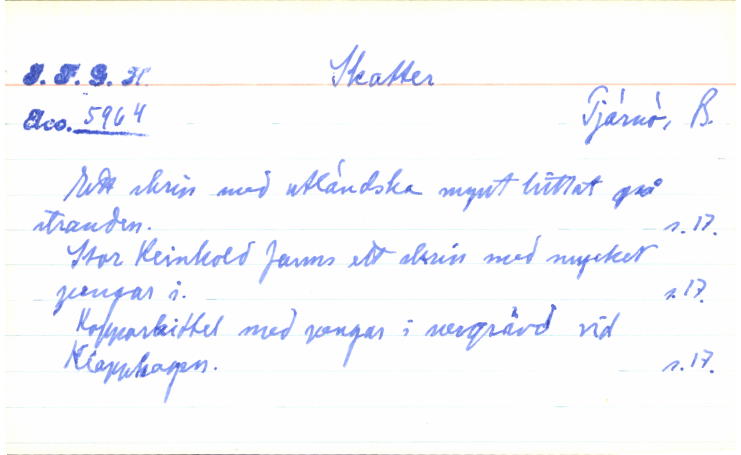 I. F. G. H. Skatter
Acc. 5964 Tjärnö, B.
Ett skrin med utländska mynt hittat på
stranden. s. 17.
Stor Reinhold fanns ett skrin med mycket
pengar i. s. 17.
Kopparkittel med pengar i nergrävd vid
s. 17.